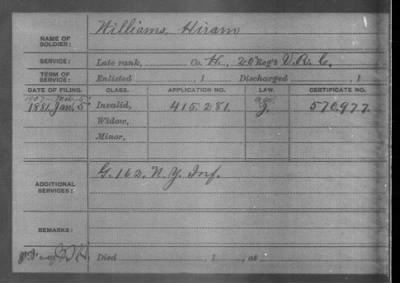 NAME OF SOLDIER: Williams, Hiram
SERVICE: Late rank, Co. H., 20 Reg't V. R. C.
TERM OF SERVICE: Enlisted , 1 Discharged , 1
DATE OF FILING. CLASS. APPLICATION NO. LAW. CERTIFICATE NO.
1881, Jan. 5 Invalid, 415.281. G. 570.977.
Widow,
Minor,
ADDITIONAL SERVICES: G. 162. N. Y. Inf.
REMARKS:
Died , 1 , at